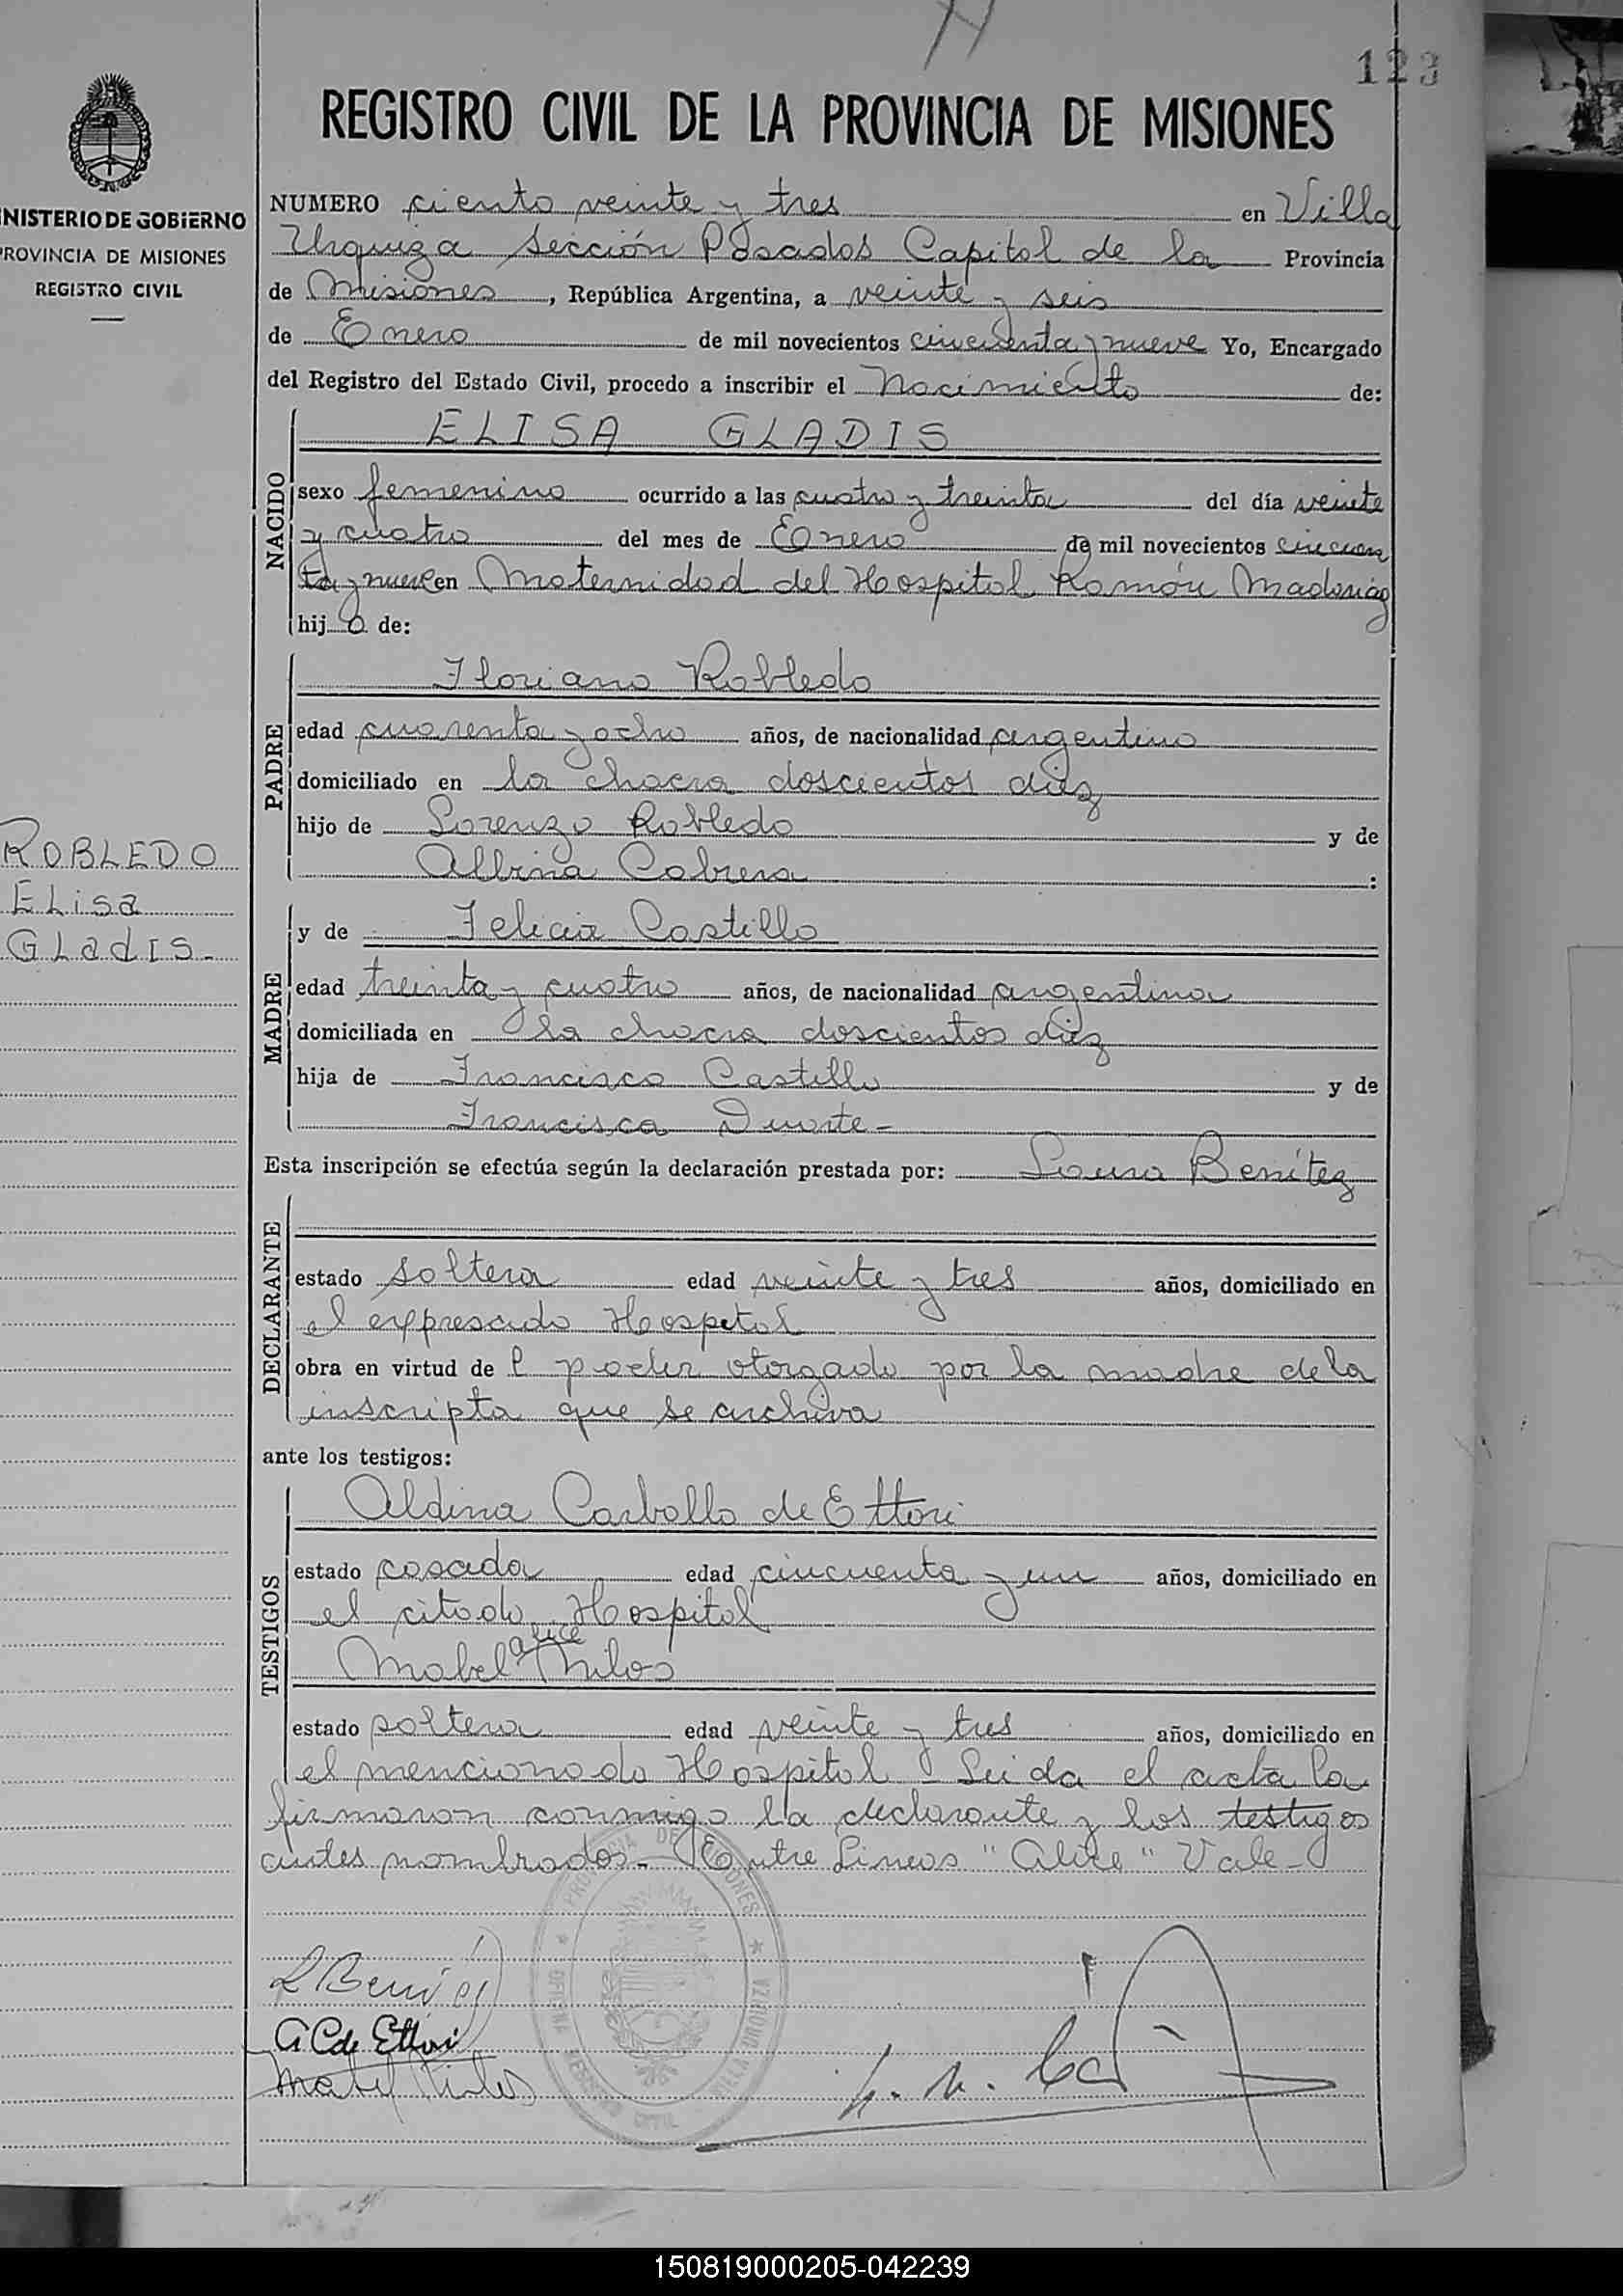 123
REGISTRO CIVIL DE LA PROVINCIA DE MISIONES
NISTERIO DE GOBIERNO
PROVINCIA DE MISIONES
REGISTRO CIVIL
NUMERO ciento veinte y tres en Villa
Urquiza Sección Posadas Capital de la Provincia
de Misiones, República Argentina, a veinte y seis
de Enero de mil novecientos cincuenta y nueve Yo, Encargado
del Registro del Estado Civil, procedo a inscribir el Nacimiento de:
NACIDO
ELISA GLADIS
sexo femenino ocurrido a las cuatro y treinta del día veinte
y cuatro del mes de Enero de mil novecientos cincuen
ta y nueve en Maternidad del Hospital Ramón Madariag
hij a de:
PADRE
Floriano Robledo
edad cuarenta y ocho años, de nacionalidad argentino
domiciliado en la chacra doscientos diez
hijo de Lorenzo Robledo y de
Albina Cabrera :
ROBLEDO
ELisa
GLadIS.
MADRE
y de Felicia Castillo
edad treinta y cuatro años, de nacionalidad argentina
domiciliada en la chacra doscientos diez
hija de Francisco Castillo y de
Francisca Duarte-
Esta inscripción se efectúa según la declaración prestada por: Laura Benítez
DECLARANTE
estado soltera edad veinte y tres años, domiciliado en
el expresado Hospital
obra en virtud de l poder otorgado por la madre de la
inscripta que se archiva
ante los testigos:
TESTIGOS
Aldina Carballo de Ettori
estado casada edad cincuenta y un años, domiciliado en
el citado Hospital
alice
Mabel Milos
estado soltera edad veinte y tres años, domiciliado en
el mencionado Hospital - Leida el acta la
firmaron conmigo la declarante y los testigos
antes nombrados.- Entre Lineas "Alice" Vale-
PROVINCIA DE MISIONES
VILLA URQUIZA
REGISTRO CIVIL
L Benítez
A C de Ettori
Mabel Milos
150819000205-042239